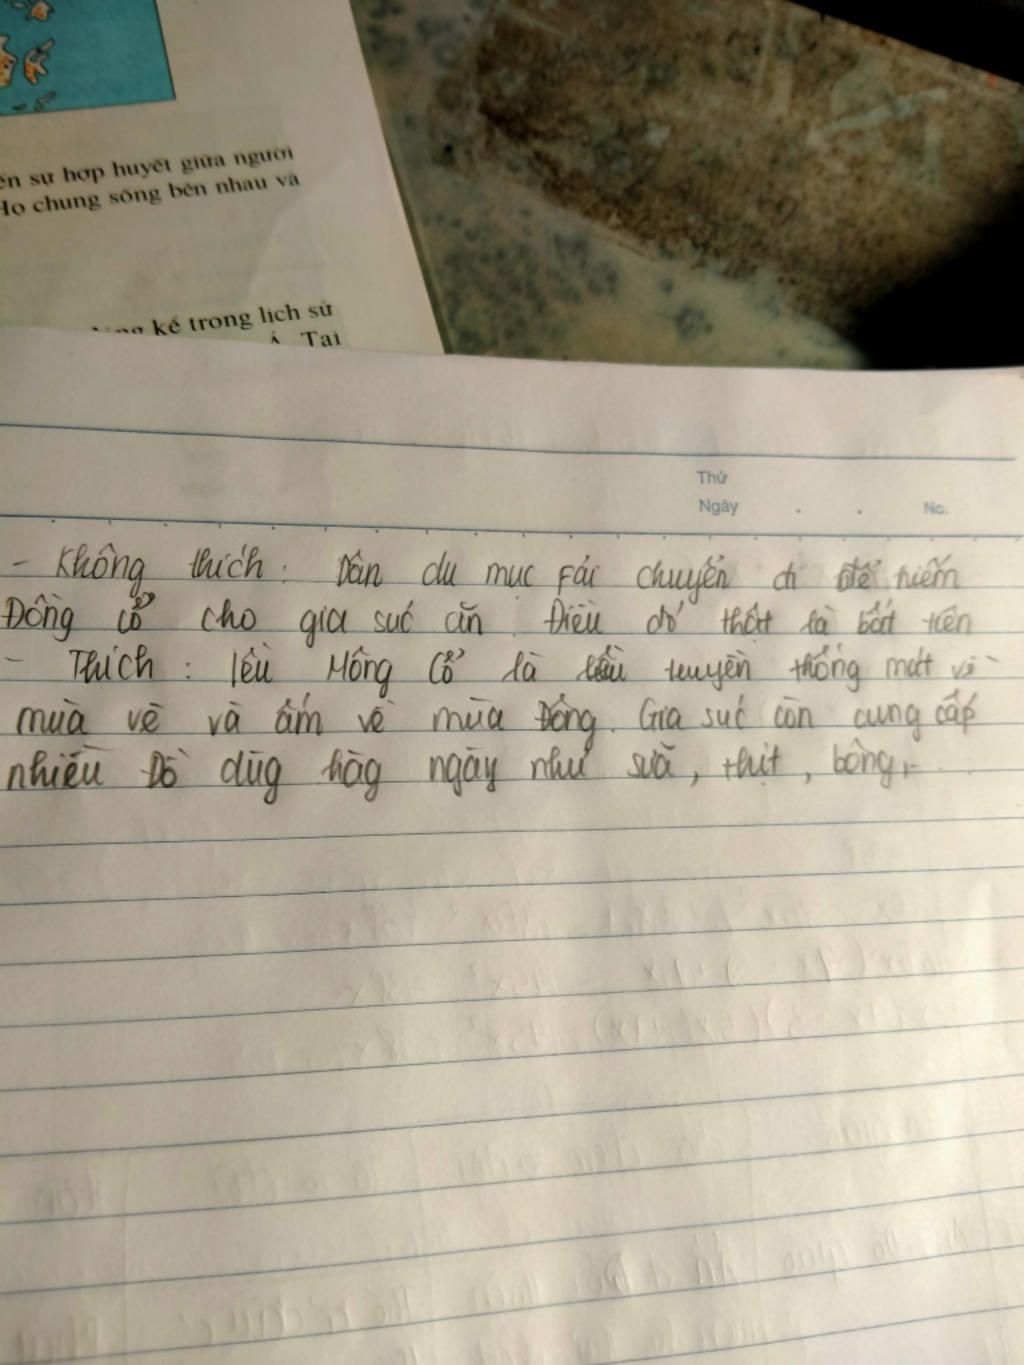 ên sự hợp huyết giữa người
Họ chung sống bên nhau và
kể trong lịch sử
Tại
Thứ
Ngày . . No.
- Không thích : Dân du mục Fải chuyển đi để kiếm
Đồng cỏ cho gia suć ăn . Điều đó thật là bất tiện
- Thích : lều Mông Cổ là lều truyền thống mát về
mùa vè và ấm về mùa Đông. Gia suć còn cung cấp
nhiều Đồ dùg hàg ngày như sữa, thịt, bông,